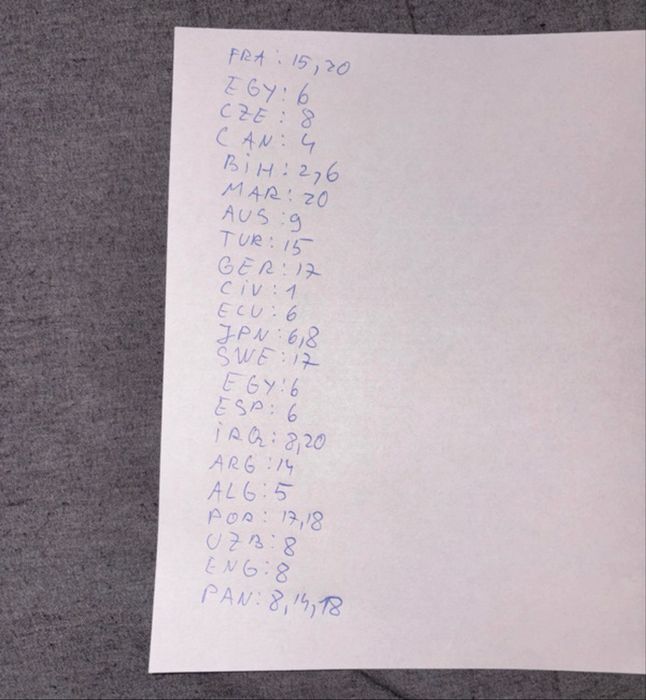 FRA: 15, 20
EGY: 6
CZE: 8
CAN: 4
BiH: 2, 6
MAR: 20
AUS: 9
TUR: 15
GER: 17
CiV: 1
ECU: 6
JPN: 6,8
SWE: 17
EGY: 6
ESP: 6
iRQ: 8,20
ARG: 14
ALG: 5
POR: 17,18
UZB: 8
ENG: 8
PAN: 8, 14, 18